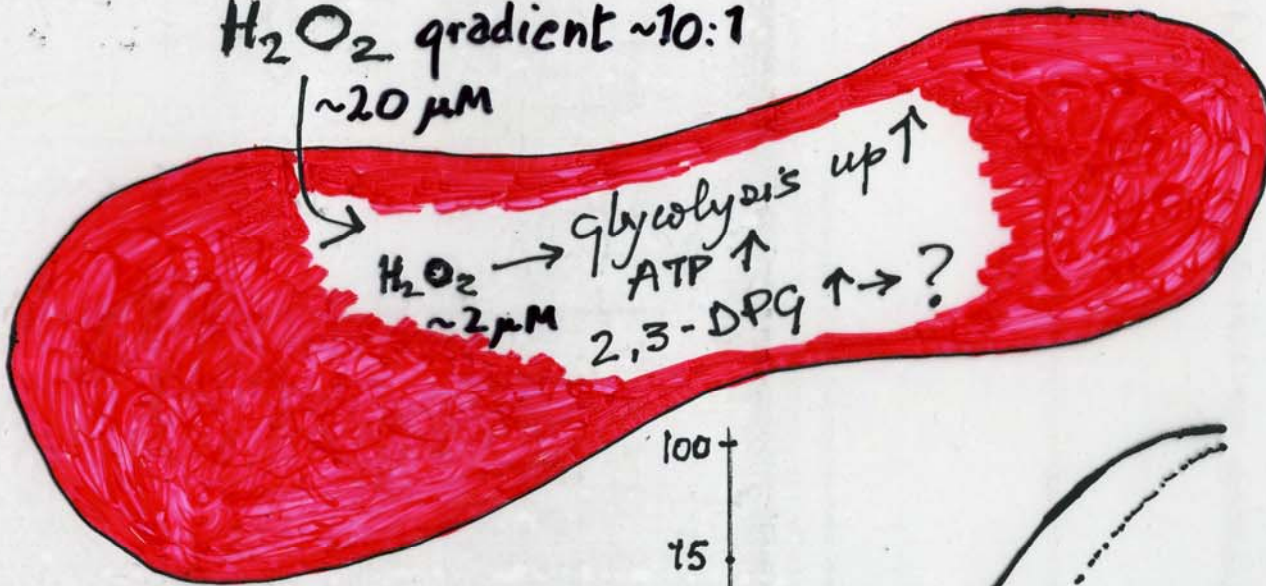 H₂O₂ gradient ~10:1
~20 μM
glycolysis up ↑
H₂O₂ →
ATP ↑
~2 μM
2,3-DPG ↑ → ?
100
75